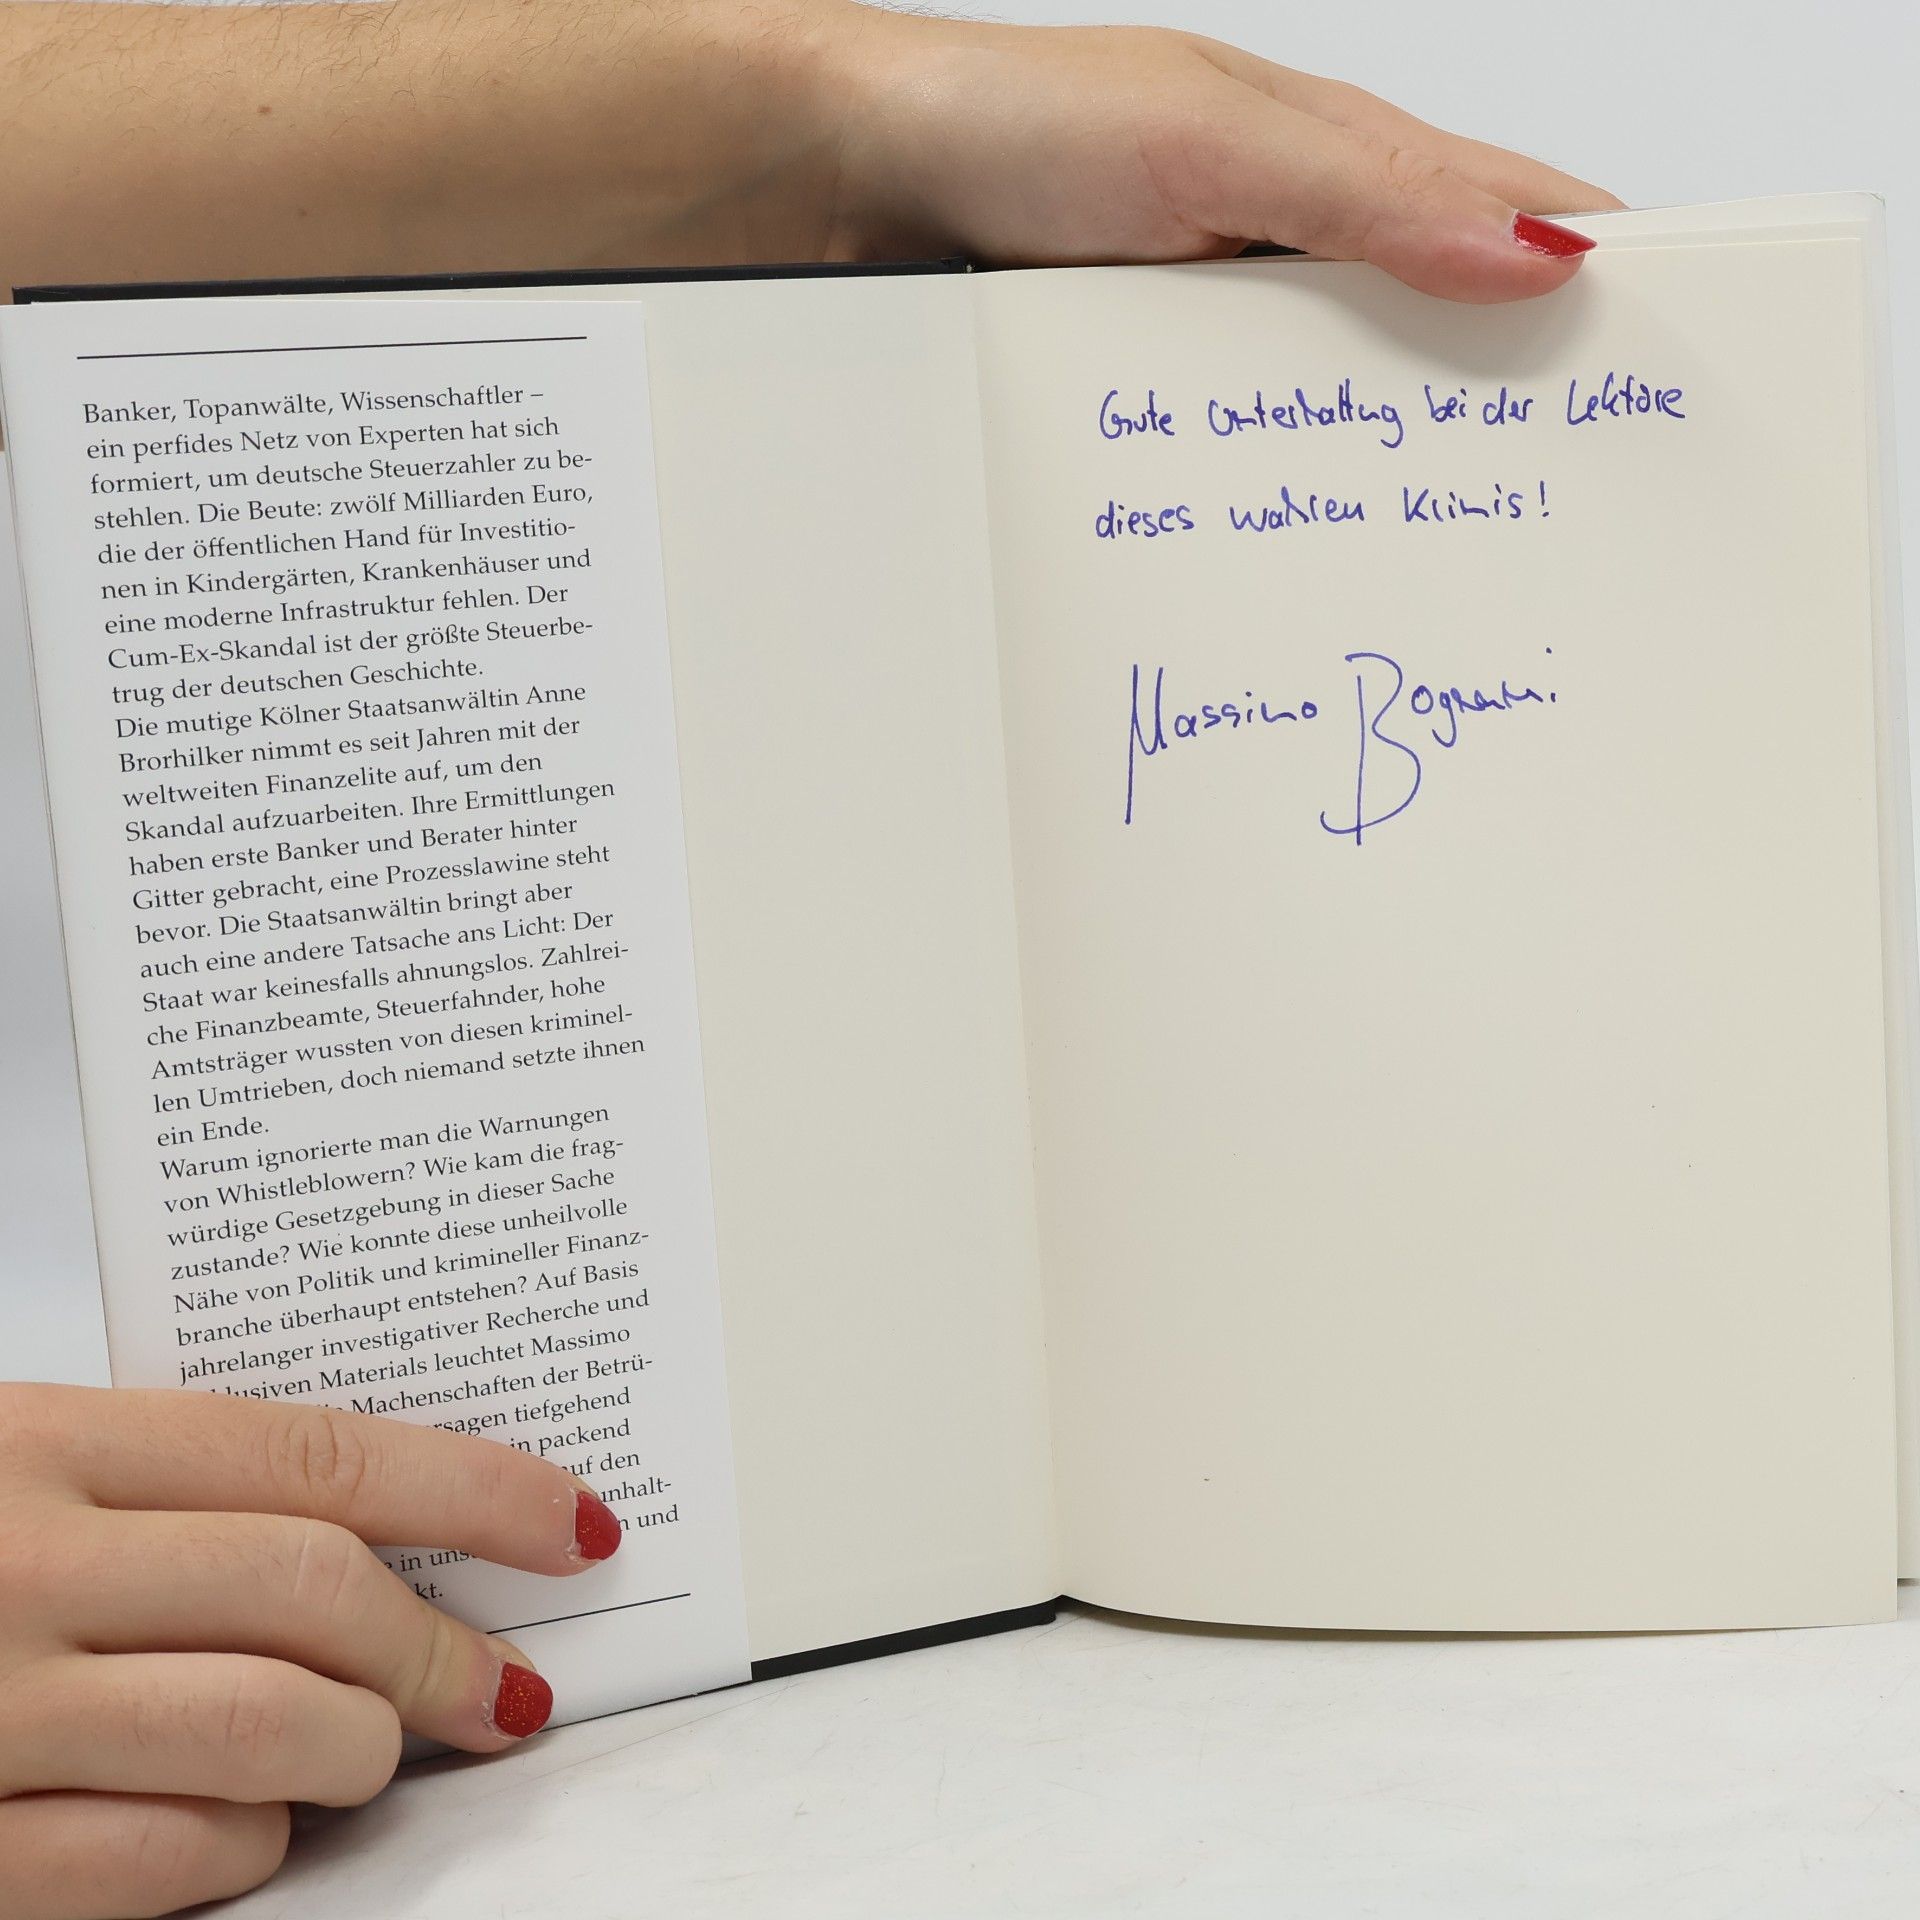 Banker, Topanwälte, Wissenschaftler –
ein perfides Netz von Experten hat sich
formiert, um deutsche Steuerzahler zu be-
stehlen. Die Beute: zwölf Milliarden Euro,
die der öffentlichen Hand für Investitio-
nen in Kindergärten, Krankenhäuser und
eine moderne Infrastruktur fehlen. Der
Cum-Ex-Skandal ist der größte Steuerbe-
trug der deutschen Geschichte.
Die mutige Kölner Staatsanwältin Anne
Brorhilker nimmt es seit Jahren mit der
weltweiten Finanzelite auf, um den
Skandal aufzuarbeiten. Ihre Ermittlungen
haben erste Banker und Berater hinter
Gitter gebracht, eine Prozesslawine steht
bevor. Die Staatsanwältin bringt aber
auch eine andere Tatsache ans Licht: Der
Staat war keinesfalls ahnungslos. Zahlrei-
che Finanzbeamte, Steuerfahnder, hohe
Amtsträger wussten von diesen kriminel-
len Umtrieben, doch niemand setzte ihnen
ein Ende.
Warum ignorierte man die Warnungen
von Whistleblowern? Wie kam die frag-
würdige Gesetzgebung in dieser Sache
zustande? Wie konnte diese unheilvolle
Nähe von Politik und krimineller Finanz-
branche überhaupt entstehen? Auf Basis
jahrelanger investigativer Recherche und
klusiven Materials leuchtet Massimo
Machenschaften der Betrü-
rsagen tiefgehend
in packend
auf den
unhalt-
n und
e in uns
kt.
Gute Unterhaltung bei der Lektüre
dieses wahren Krimis!
Massimo Bognanni